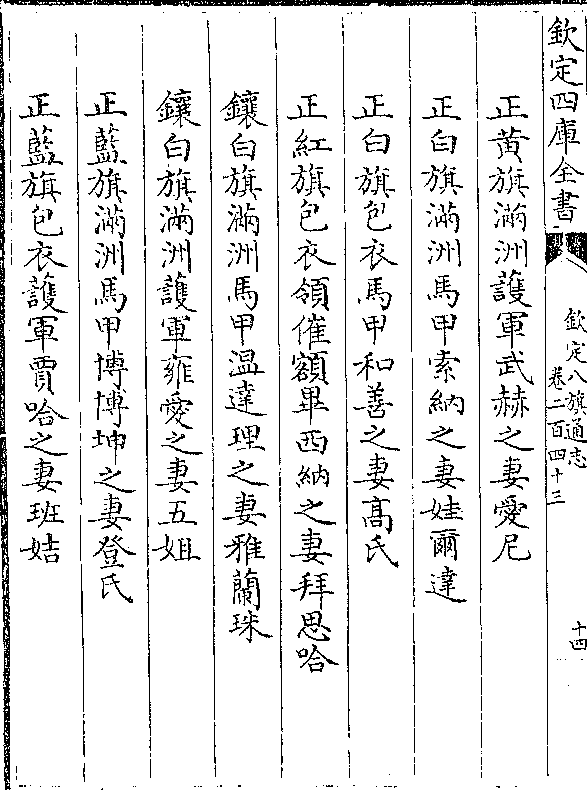 欽定四庫全書
欽定八旗通志
卷二百四十三
十四
正黄旗滿洲護軍武赫之妻愛尼
正白旗滿洲馬甲索納之妻娃爾達
正白旗包衣馬甲和善之妻髙氏
正紅旗包衣領催額畢西納之妻拜思哈
鑲白旗滿洲馬甲温達理之妻雅蘭珠
鑲白旗滿洲護軍雍愛之妻五姐
正藍旗滿洲馬甲博博坤之妻登氏
正藍旗包衣護軍賈哈之妻班姞